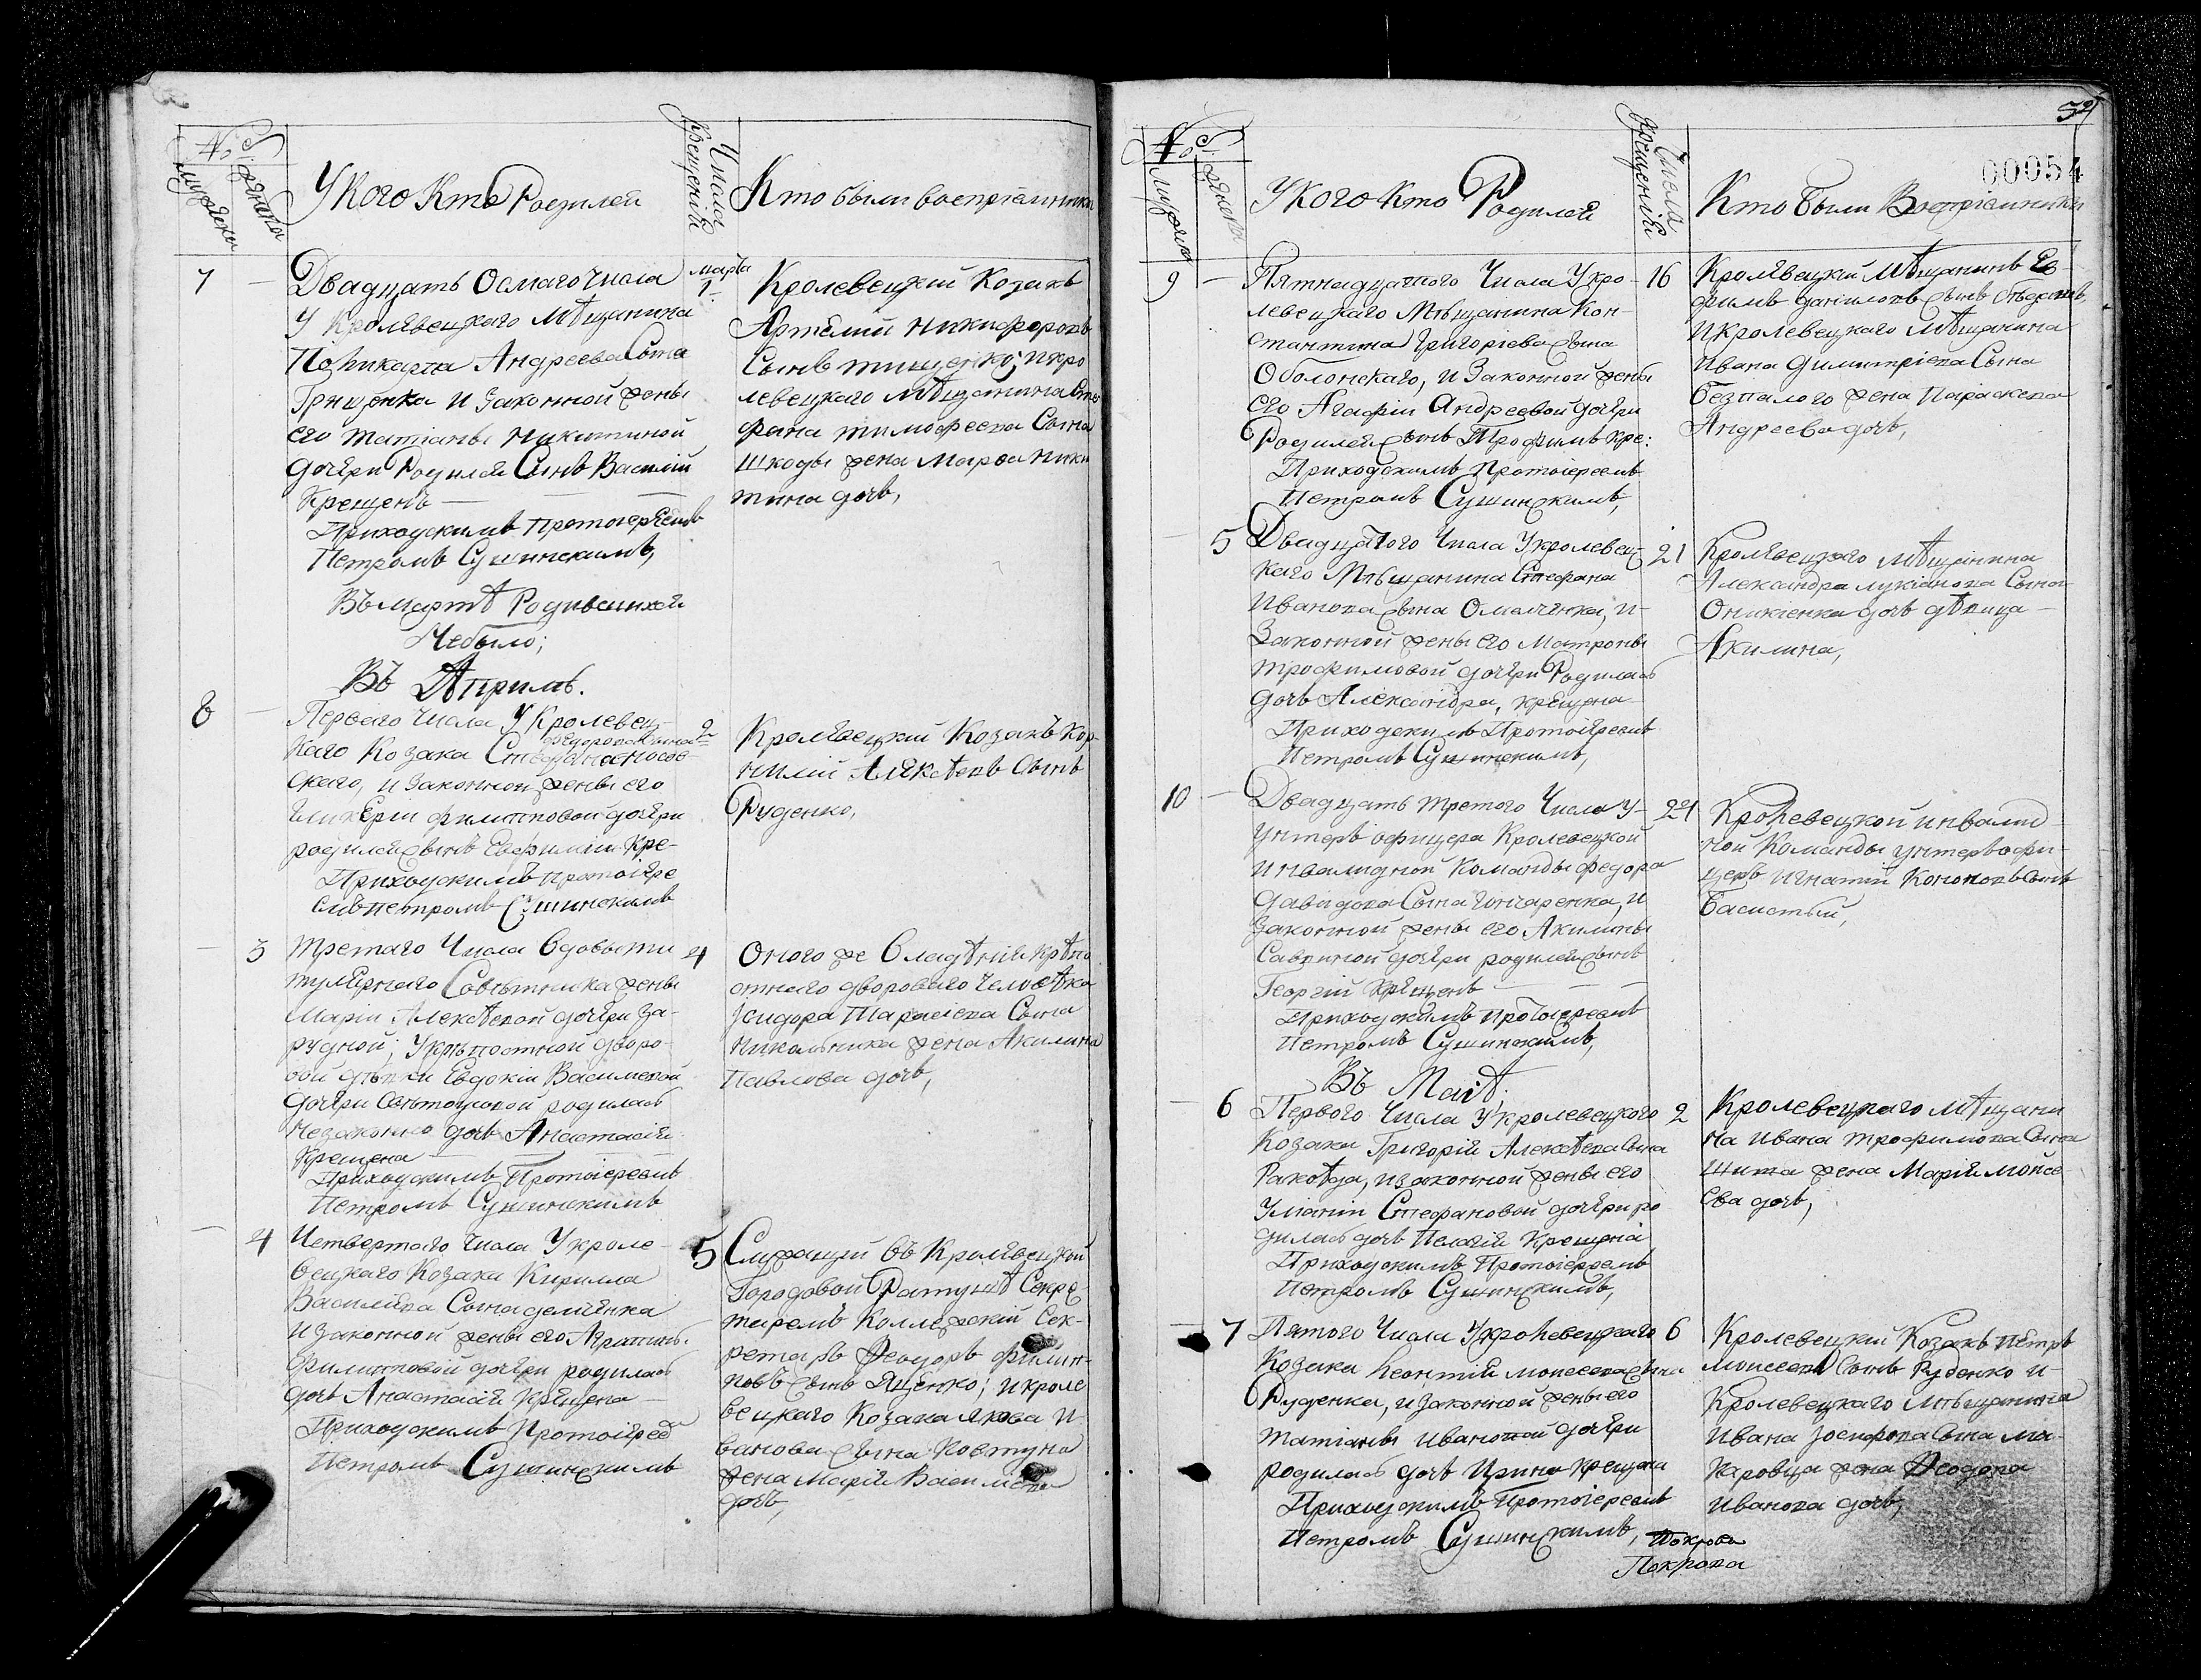 №
Мужеска
Женска
У Кого Кто Родился
Числа
Крещенія
Кто были воспріемники
7
Двадцать Осмаго Числа
У Кролѣвецкаго Мѣщанина
Поликарпа Андреева Сына
Грищенка и Законной жены
его татіаны Никитиной
дочери Родился Сынъ Василій
Крещенъ
Приходскимъ Протоіереемъ
Петромъ Сушинскимъ,
марта
1
Кролевецкій Козакъ
Артемій Никифоровъ
Сынъ тищенко; и кро
левецкаго Мѣщанина Сте
фана тимофеева Сына
Шкоды жена Марѳа Ники
тина дочь,
Въ Мартѣ Родившихся
Небыло;
Въ Априлѣ.
8
Перваго Числа У Кролевец-
каго Козака Стефана
федорова Сына
скаго, и Законной жены его
Гликеріи филиповой дочери
родился сынъ Евфимій Кре-
Приходскимъ протоіере
емъ петромъ Сушинскимъ
2
Кролѣвецкій Козакъ Кор-
нилій Алексѣевъ Сынъ
Руденко,
3
Третаго Числа Вдовы ти
тулярнаго Совѣтника жены
Маріи Алексѣевой дочери За-
рудной; Укрѣпостной дворо-
вой дѣвки Евдокіи Василіевой
дочери родилась
Незаконно дочь Анастасія
Крещена
Приходскимъ Протоіереемъ
Петромъ Сушинскимъ
4
Оного же Владѣнія крѣпо
стнаго двороваго Человѣка
Ісидора Тарасіева Сына
жена Акилина
Павлова дочь,
4
Четвертаго Числа У кроле-
вецкаго Козака Кирилла
Василіева Сына
и законной жены его Агрипины
Филиповой дочери родилась
дочь Анастасія Крещена
Приходскимъ Протоіерее
Петромъ Сушинскимъ
5
Служащій въ Кролѣвецкой
Городовой Ратушѣ Секре-
таремъ Коллежскій Сек-
ретарь Феодоръ филип-
повъ сынъ Яценко; и кроле
вецкаго Козака Якова И-
ванова сына Ковтуна
жена Марія Василіева
дочь,
32
00054
№
Мужеска
Женска
У Кого Кто Родился
Числа
Крещенія
Кто были Воспріемники
9
Пятнадцатого Числа У кро-
левецкаго Мѣщанина Кон-
стантина Григоріева сына
Оболонскаго, и Законной жены
его Агафіи Андреевой дочери
Родился сынъ Трофимъ Кре:
Приходскимъ Протоіереемъ
Петромъ Сушинскимъ,
16
Кролѣвецкій Мѣщанинъ Еф-
фимъ Даніиловъ сынъ
и кролевецкаго Мѣщанина
Ивана Димитріева Сына
Безпалого жена Параскева
Андреева дочь,
5
Двадцатого Числа У кролевец-
каго Мѣщанина Стефана
Иванова сына Омелченка, и
Законной жены его Матроны
Трофимовой дочери Родилась
дочь Александра, крещена
Приходскимъ Протоіереемъ
Петромъ Сушинскимъ,
21
Кролѣвецкаго Мѣщанина
Александра лукіанова Сына
Оникіенка дочь дѣвица
Акилина,
10
Двадцать третого Числа У-
унтеръ офицера Кролевецкой
Инвалидной Команды федора
давидова Сына Гончаренка, и
Законной жены его Акилины
Саввиной дочери родился сынъ
Георгій Крещенъ
Приходскимъ протоіереемъ
Петромъ Сушинскимъ,
24
Кролевецкой инвалид-
ной Команды унтеръ офи-
церъ Игнатій Кононовъ Сынъ
Басистый,
Въ Маіѣ,
6
Перваго Числа У кролевецкого
Козака Григорія Алексѣева Сына
Ракоѣда, и законной жены его
Уліаніи Стефановой дочери ро
дилась дочь Пелагія Крещена
Приходскимъ Протоіереемъ
Петромъ Сушинскимъ,
2
Кролевецкаго Мѣщани
на Ивана трофимова Сына
Шита жена Марія Мойсе
ева дочь,
7
Пятого Числа У кролевецкаго
Козака Леонтія моисеева сына
Руденка, и законной жены его
татіаны Ивановой дочери
родилась дочь Ирина крещена
Приходскимъ Протоіереемъ
Петромъ Сушинскимъ,
6
Кролевецкій Козакъ Петръ
Моисеевъ Сынъ Руденко и
Кролевецкаго Мѣщанина
Ивана Іосифова Сына Ма-
каровца жена Феодора
Иванова дочь,
Покрова
Покрова